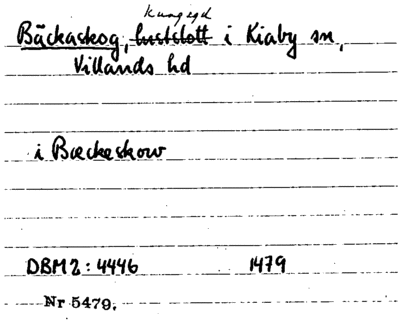 kungsgd
Bäckaskog, lustslott i Kiaby sn,
Villands hd
i Bæckeskow
DBM 2: 4446 1479
Nr 5479.